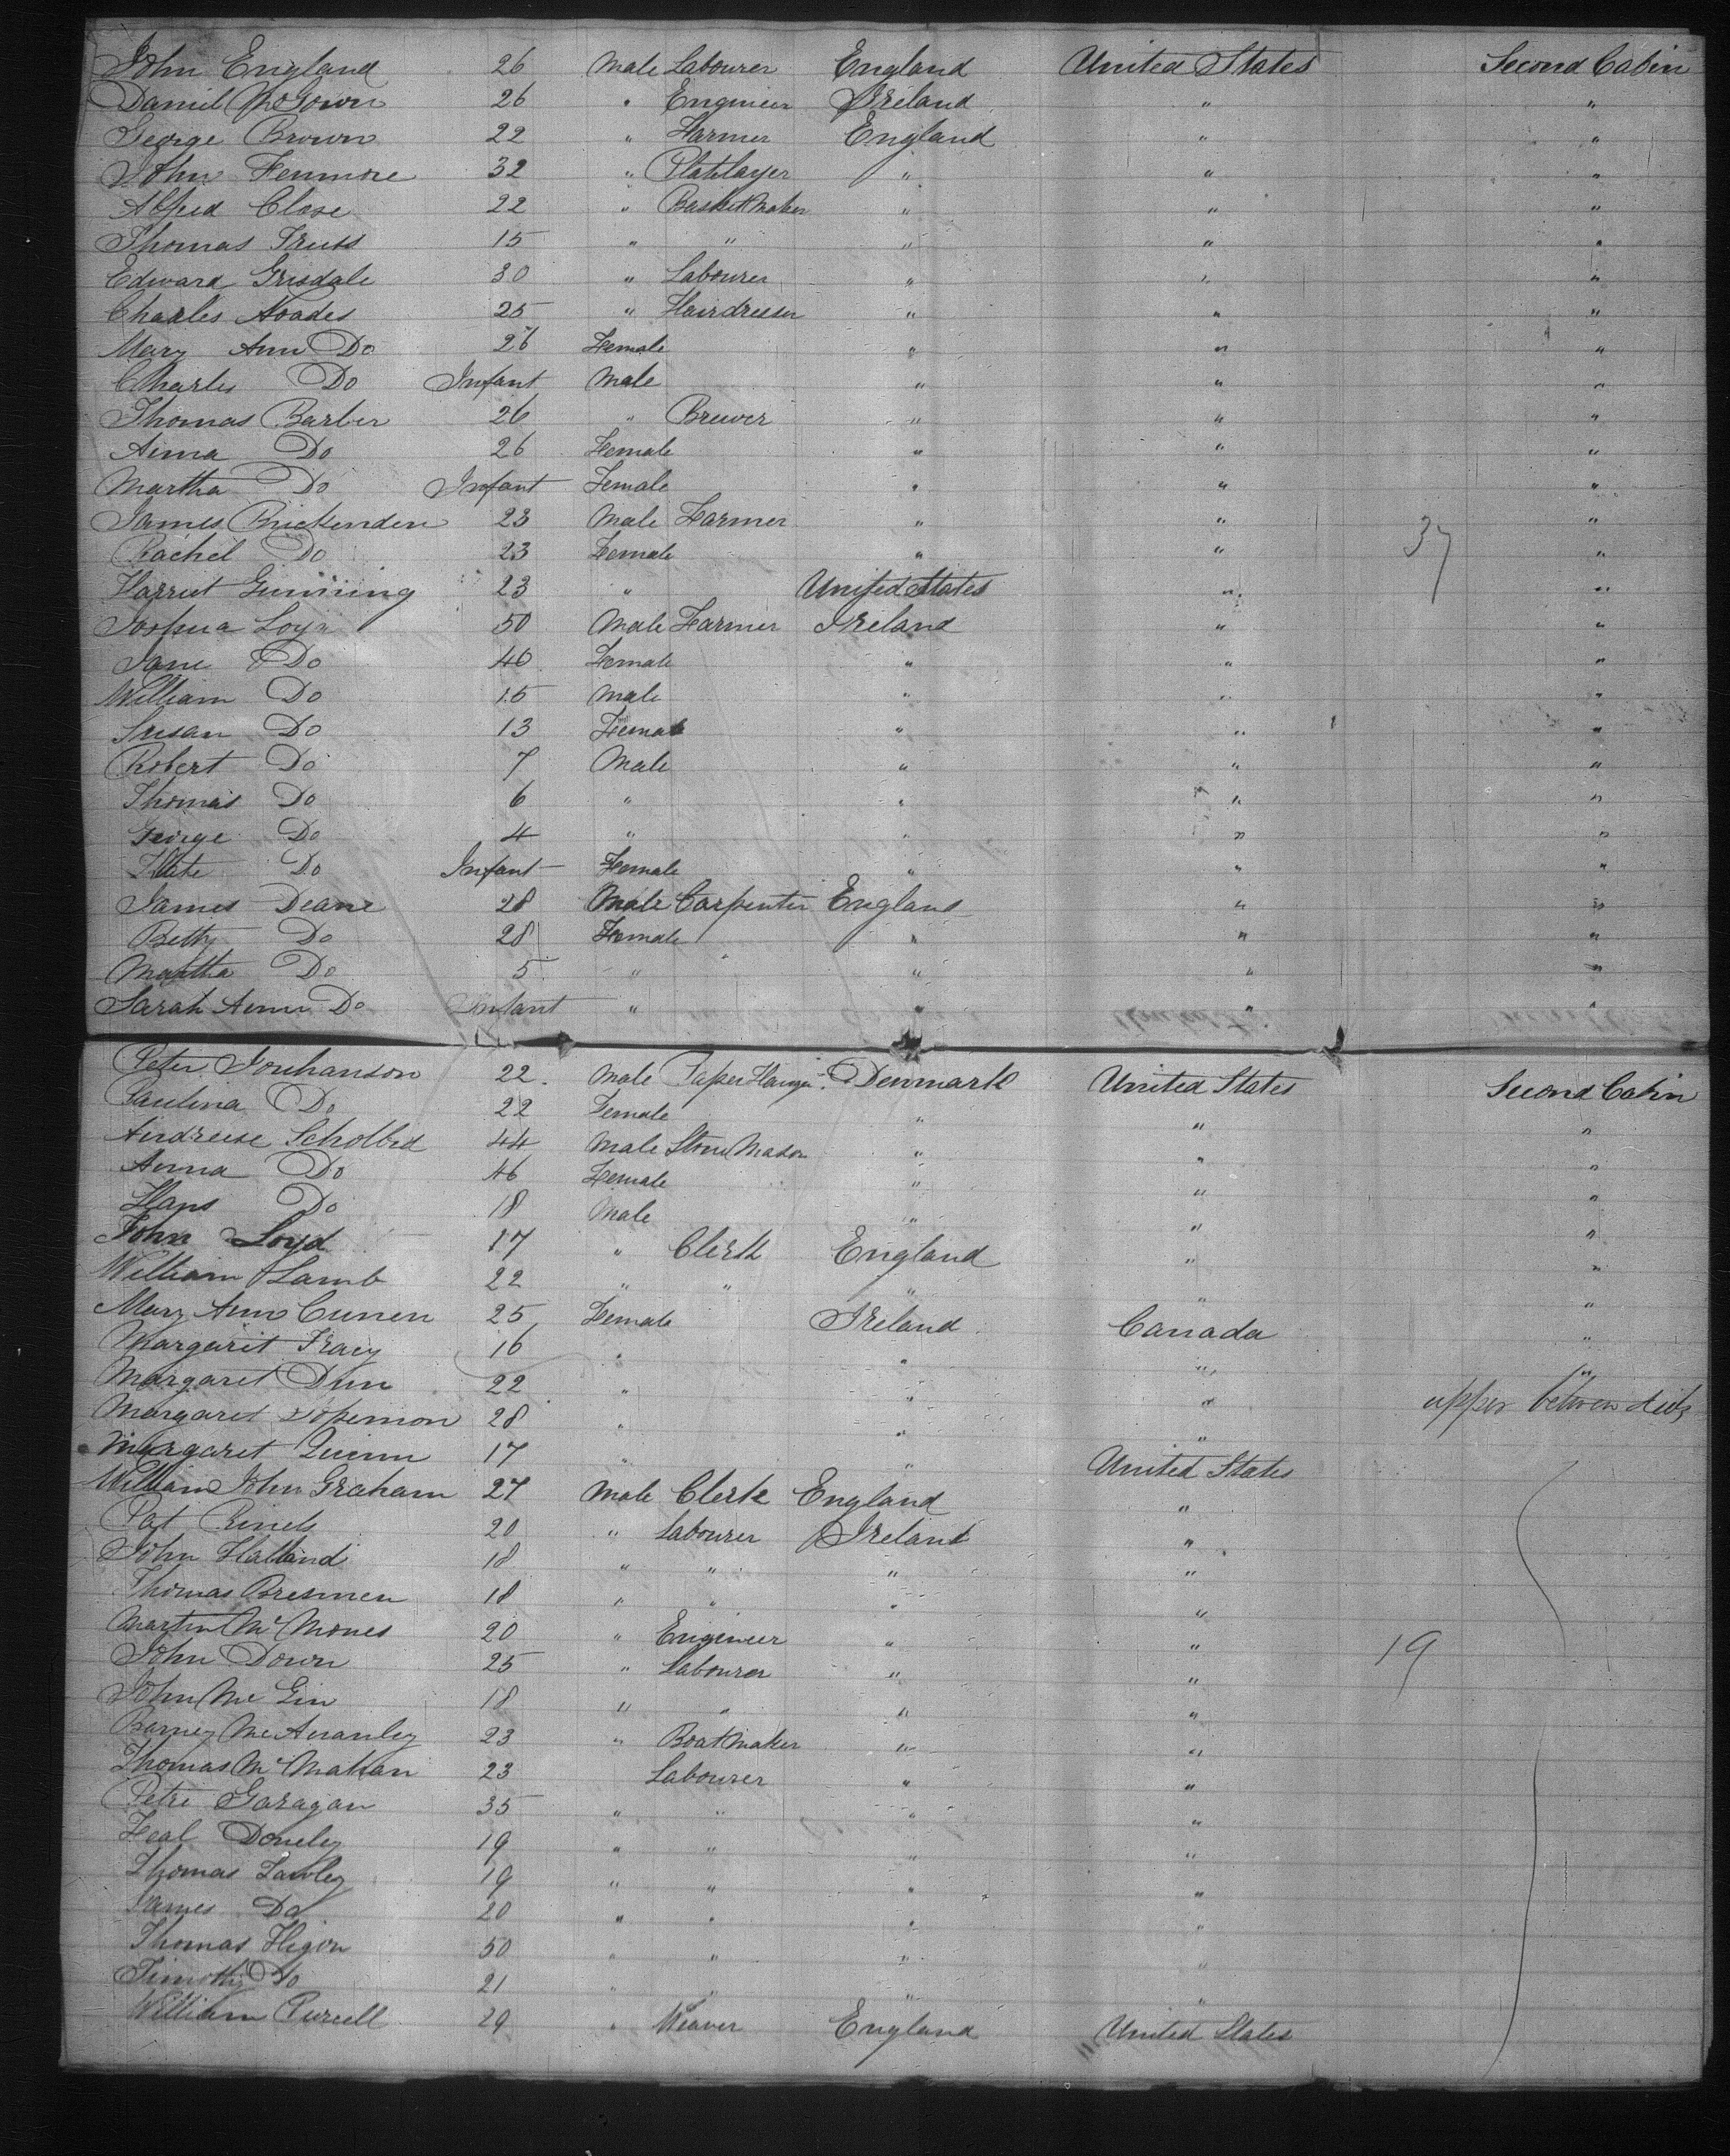 John England 26 Male Labourer England United States Second Cabin
Daniel McGown 26 " Engineer Ireland " "
George Brown 22 " Farmer England " "
John Fenmore 32 " Platelayer " " "
Alfred Close 22 " Basket Maker " " "
Thomas 15 " " " " "
Edward Grisdale 30 " Labourer " " "
Charles Noades 25 " Hairdresser " " "
Mary Ann Do 26 Female " " "
Charles Do Infant Male " " "
Thomas Barber 26 " Brewer " " "
Anna Do 26 Female " " "
Martha Do Infant Female " " "
James Brickenden 23 Male Farmer " " "
Rachel Do 23 Female " " 37 "
Harriet Gunning 23 " United States " "
Joshua 50 Male Farmer Ireland " "
Jane Do 40 Female " " "
William Do 15 Male " " "
Susan Do 13 Female " " "
Robert Do 7 Male " " "
Thomas Do 6 " " " "
George Do 4 " " " "
Do Infant Female " " "
James Deane 28 Male Carpenter England " "
Betty Do 28 Female " " "
Martha Do 5 " " " "
Sarah Ann Do Infant " " " "
Peter Jouhanson 22 Male Paper Hanger Denmark United States Second Cabin
Paulina Do 22 Female " " "
Andreise 44 Male Stone Mason " " "
Anna Do 46 Female " " "
Hans Do 18 Male " " "
John Loyd 17 " Clerk England " "
William Lamb 22 " " " " "
Mary Ann Curren 25 Female Ireland Canada "
Margaret Tracy 16 " " " "
Margaret Dun 22 " " " upper between decks
Margaret 28 " " "
Margaret Quinn 17 " " United States
William John Graham 27 Male Clerk England "
Pat 20 " Labourer Ireland "
John Holland 18 " " " "
Thomas Bresnen 18 " " " "
Martin Mc Mones 20 " Engineer " "
John Down 25 " Labourer " " 19
John Mc Gin 18 " " " "
Barney Mc Ananley 23 " Boat Maker " "
Thomas Mc Mahan 23 Labourer " "
Petre Garagan 35 " " " "
Doneley 19 " " " "
Thomas Lawley 19 " " " "
James Do 20 " " " "
Thomas Higon 50 " " " "
Timothy Do 21 " " " "
William Purcell 29 " Weaver England United States